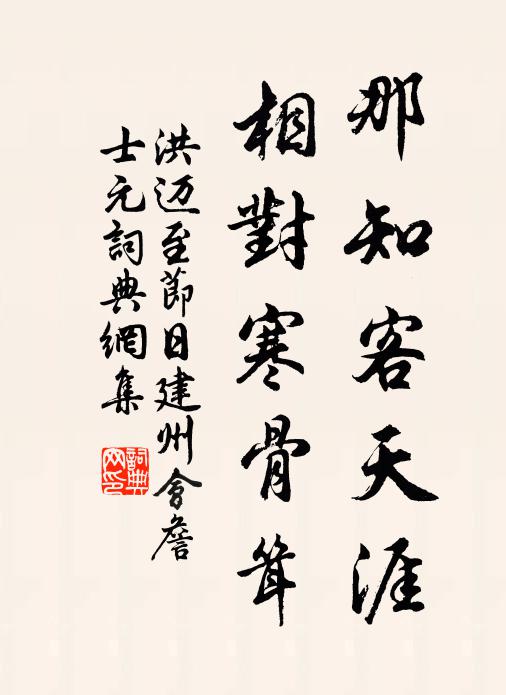 那知客天涯
相對寒骨聳
洪迈至節日建州會詹
士元詞典網集
詞典
网印